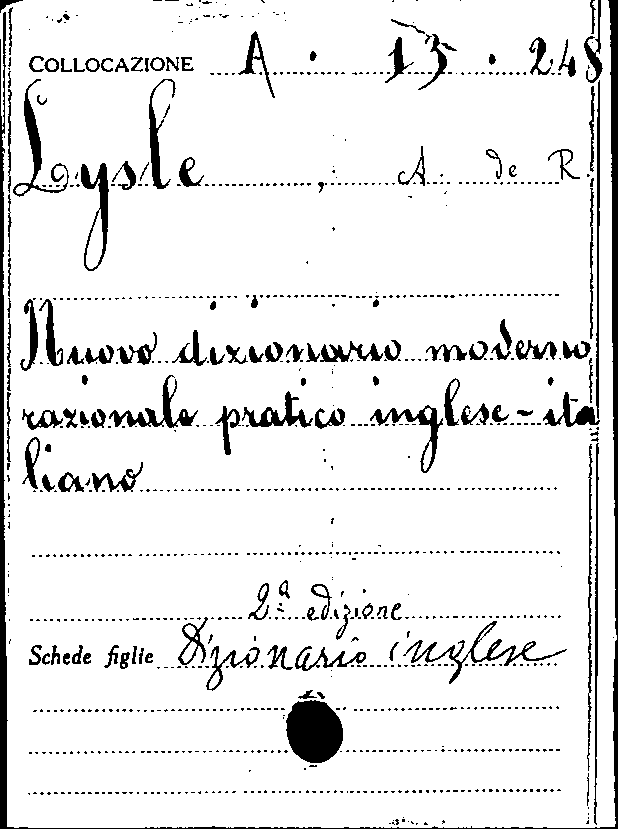 COLLOCAZIONE A. 13. 248
Lysle, A. de R.
Nuovo dizionario moderno
razionale pratico inglese-ita
liano
2ª edizione
Schede figlie Dizionario inglese